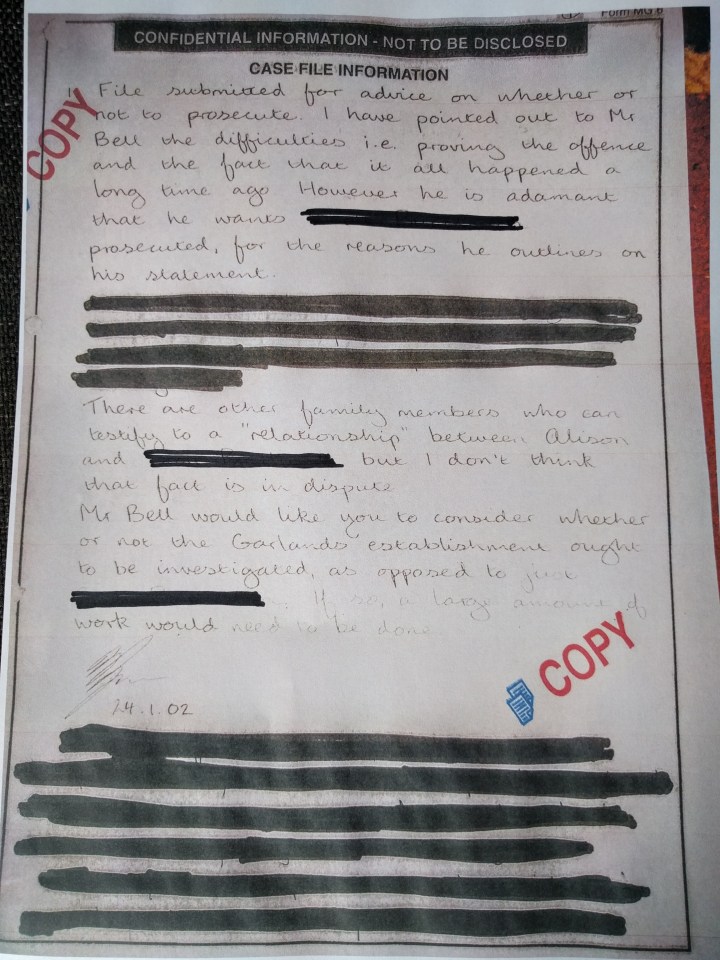 Form MG 6
CONFIDENTIAL INFORMATION - NOT TO BE DISCLOSED
CASE FILE INFORMATION
COPY
File submitted for advice on whether or
not to prosecute. I have pointed out to Mr
Bell the difficulties i.e. proving the offence
and the fact that it all happened a
long time ago However he is adamant
that he wants
prosecuted, for the reasons he outlines on
his statement.
There are other family members who can
testify to a "relationship" between Alison
and but I don't think
that fact is in dispute
Mr Bell would like you to consider whether
or not the Garlands establishment ought
to be investigated, as opposed to just
If so, a large amount of
work would need to be done
24.1.02
COPY